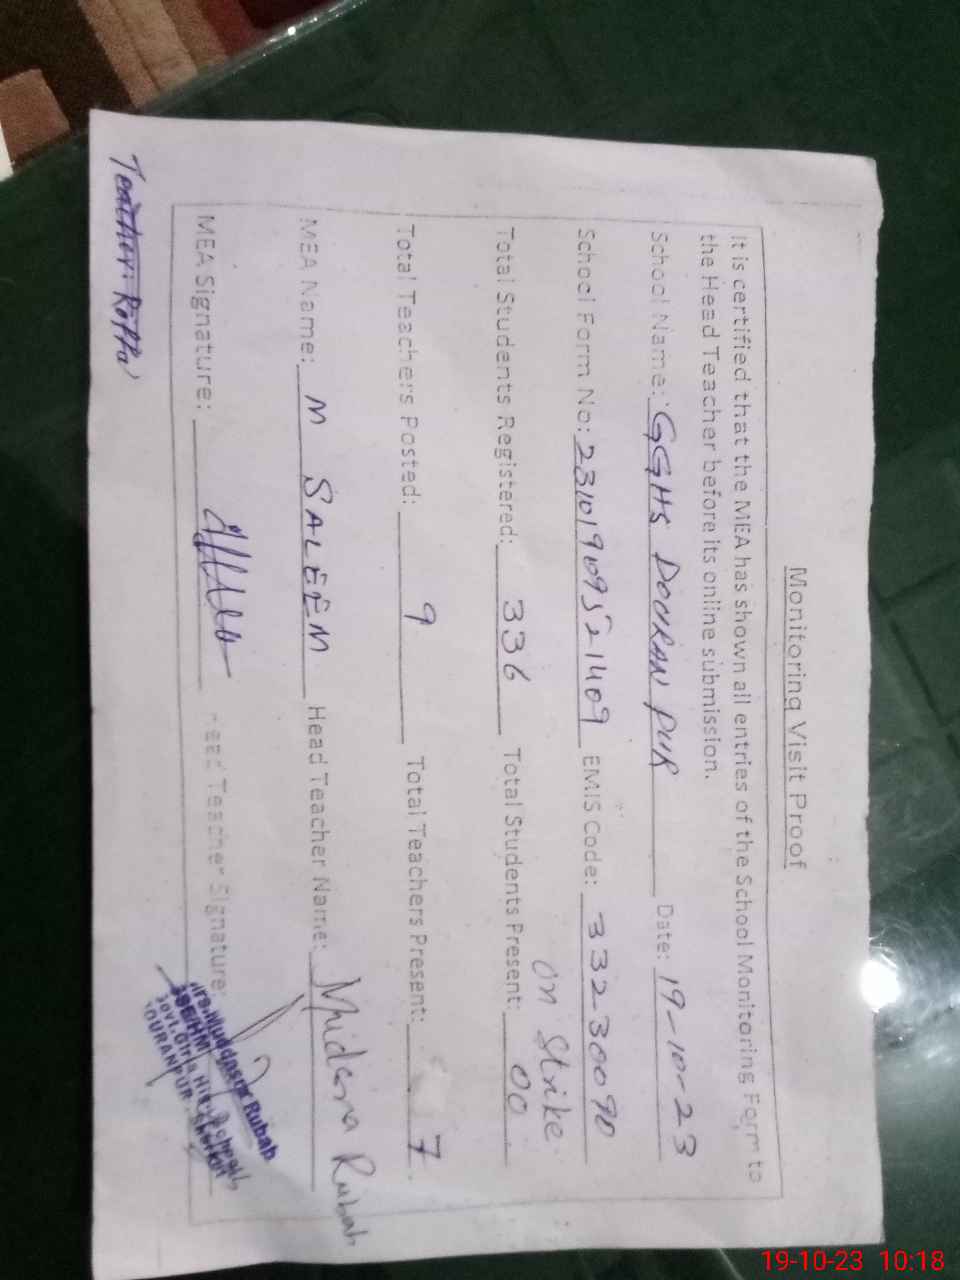 Monitoring Visit Proof
It is certified that the MEA has shown all entries of the School Monitoring Form to
the Head Teacher before its online submission.
School Name: GGHS DOURAN PUR Date: 19-10-23
School Form No: 231019109521409 EMIS Code: 33230090
on Strike
Total Students Registered: 336 Total Students Present: 00
Total Teachers Posted: 9 Total Teachers Present: 7
MEA Name: M SALEEM Head Teacher Name: Rubab
MEA Signature: Head Teacher Signature:
Mrs. Rubab
SSE/HM
Govt. Girls High School
DOURANPUR
Teacher:
19-10-23 10:18